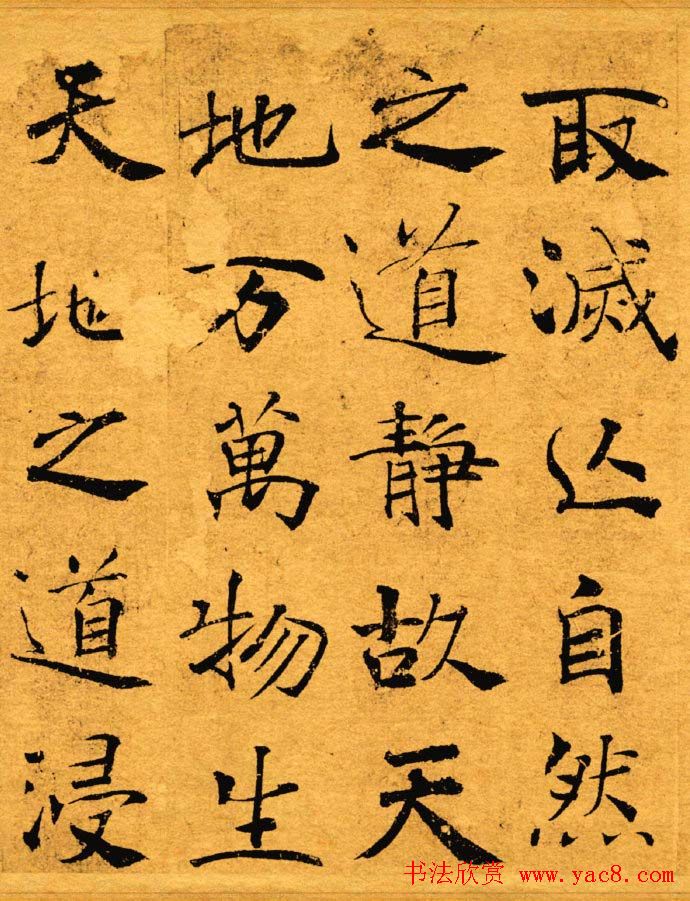 取滅亾自然
之道静故天
地万萬物生
天地之道浸
书法欣赏 www.yac8.com